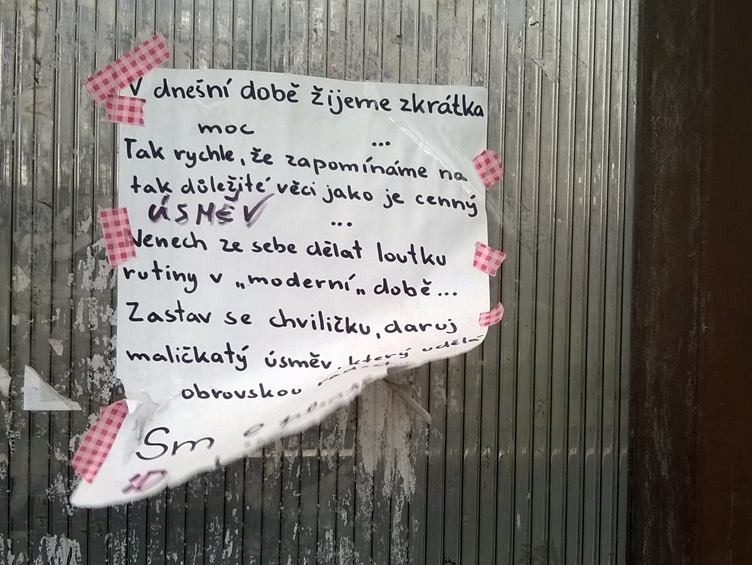 V dnešní době žijeme zkrátka
moc ...
Tak rychle, že zapomínáme na
tak důležité věci jako je cenný
ÚSMĚV ...
Nenech ze sebe dělat loutku
rutiny v „moderní„ době...
Zastav se chviličku, daruj
maličkatý úsměv, který udělá
obrovskou
Sm